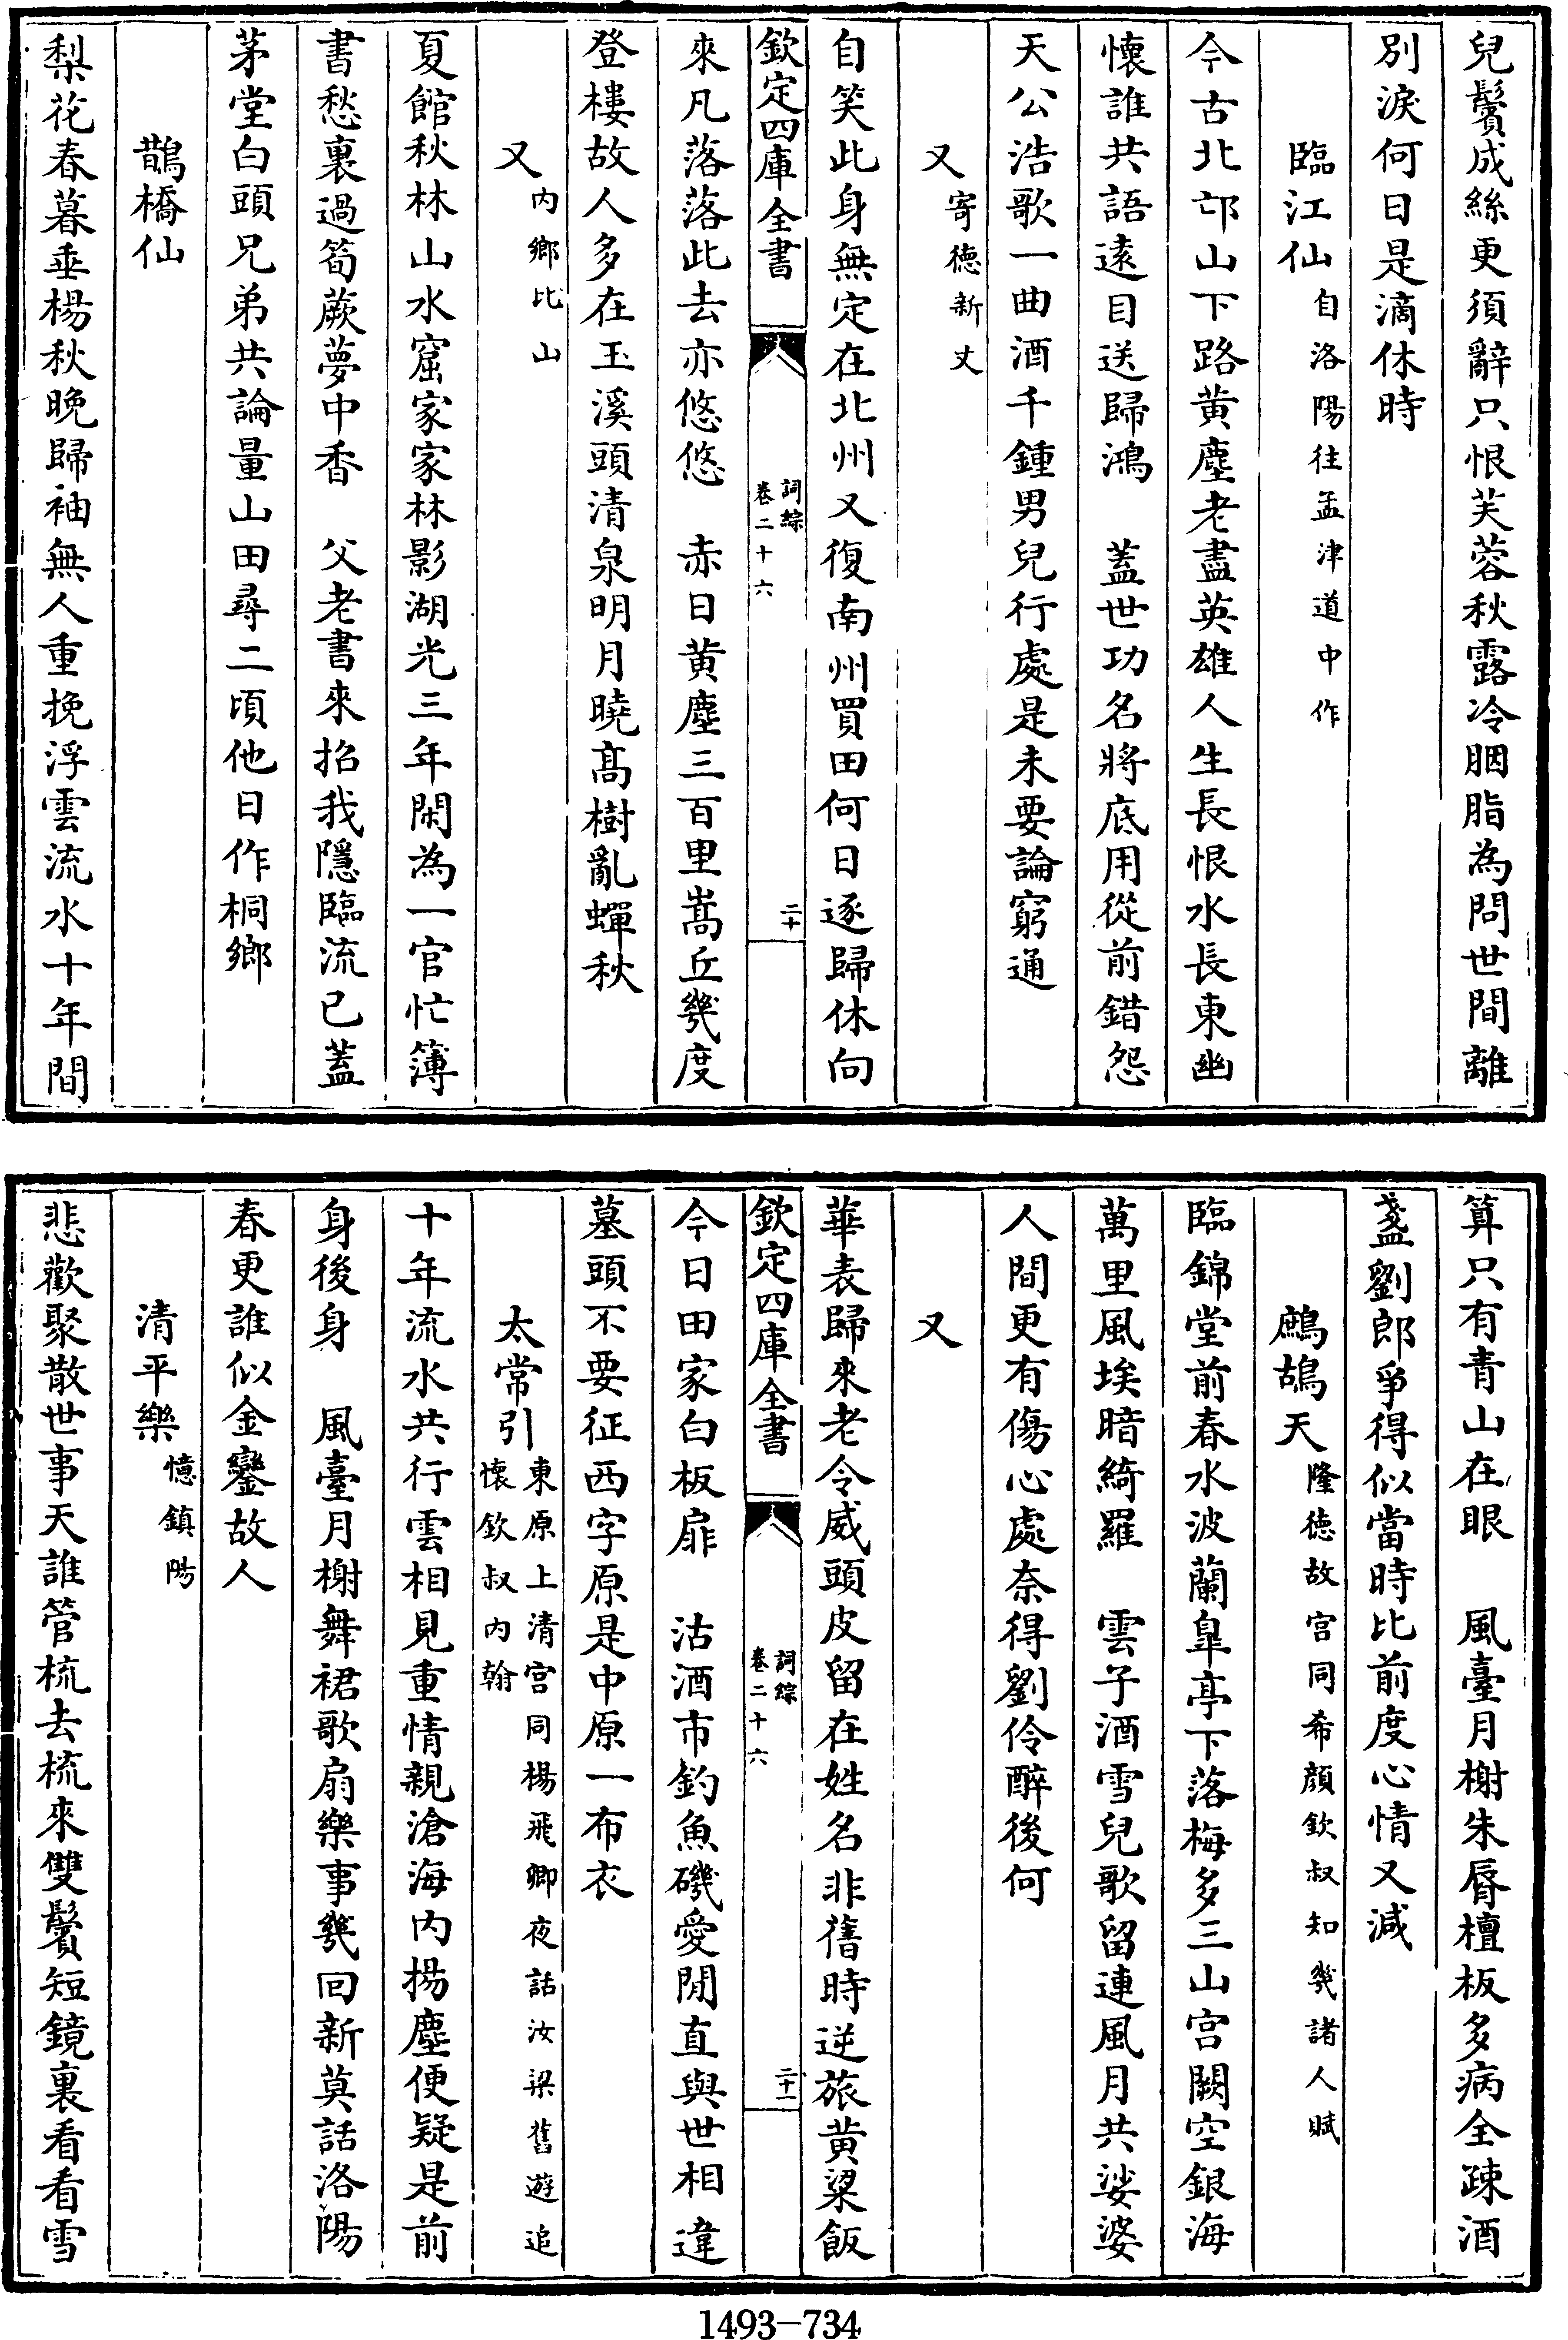 兒鬢成絲更須辭只恨芙蓉秋露冷胭脂為問世間離
別淚何日是滴休時
臨江仙 自洛陽往孟津道中作
今古北邙山下路黃塵老盡英雄人生長恨水長東幽
懷誰共語遠目送歸鴻　蓋世功名將底用從前錯怨
天公浩歌一曲酒千鍾男兒行處是未要論窮通
又 寄德新丈
自笑此身無定在北州又復南州買田何日逐歸休向
欽定四庫全書　詞綜　卷二十六　二十
來凡落落此去亦悠悠　赤日黃塵三百里嵩丘幾度
登樓故人多在玉溪頭清泉明月曉高樹亂蟬秋
又 內鄉比山
夏館秋林山水窟家家林影湖光三年閑為一官忙簿
書愁裏過筍蕨夢中香　父老書來招我隱臨流已蓋
茅堂白頭兄弟共論量山田尋二頃他日作桐鄉
鵲橋仙
梨花春暮垂楊秋晚歸袖無人重挽浮雲流水十年間
算只有青山在眼　風臺月榭朱脣檀板多病全疎酒
盞劉郎爭得似當時比前度心情又減
鷓鴣天 隆德故宮同希顏欽叔知幾諸人賦
臨錦堂前春水波蘭皐亭下落梅多三山宮闕空銀海
萬里風埃暗綺羅　雲子酒雪兒歌留連風月共娑婆
人間更有傷心處奈得劉伶醉後何
又
華表歸來老令威頭皮留在姓名非舊時逆旅黃粱飯
欽定四庫全書　詞綜　卷二十六　二十一
今日田家白板扉　沽酒市釣魚磯愛閒直與世相違
墓頭不要征西字原是中原一布衣
太常引 東原上清宮同楊飛卿夜話汝梁舊遊追
懷欽叔內翰
十年流水共行雲相見重情親滄海內揚塵便疑是前
身後身　風臺月榭舞裙歌扇樂事幾回新莫話洛陽
春更誰似金鑾故人
清平樂 憶鎮陽
悲歡聚散世事天誰管梳去梳來雙鬢短鏡裏看看雪
1493-734